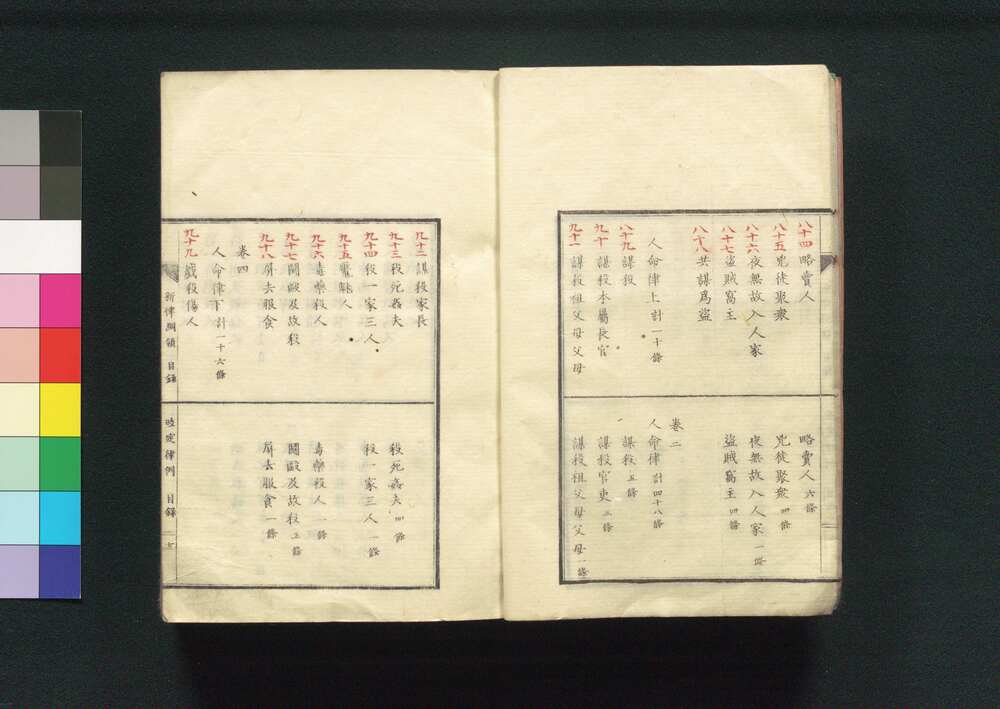 八十四 略賣人
八十五 兇徒聚衆
八十六 夜無故入人家
八十七 盗賊窩主
八十八 共謀爲盗
人命律上 計一十條
八十九 謀殺
九十 謀殺本屬長官
九十一 謀殺祖父母父母
略賣人 六條
兇徒聚衆 四條
夜無故入人家 一條
盗賊窩主 四條
卷二
人命律 計四十八條
謀殺 五條
謀殺官吏 三條
謀殺祖父母父母 一條
九十二 謀殺家長
九十三 殺死姦夫
九十四 殺一家三人
九十五 魘魅人
九十六 毒藥殺人
九十七 鬪毆及故殺
九十八 屏去服食
卷四
人命律下 計一十六條
九十九 戲殺傷人
殺死姦夫 四條
殺一家三人 一條
毒藥殺人 一條
鬪毆及故殺 五條
屏去服食 一條
新律綱領 目錄
改定律例 目錄
七